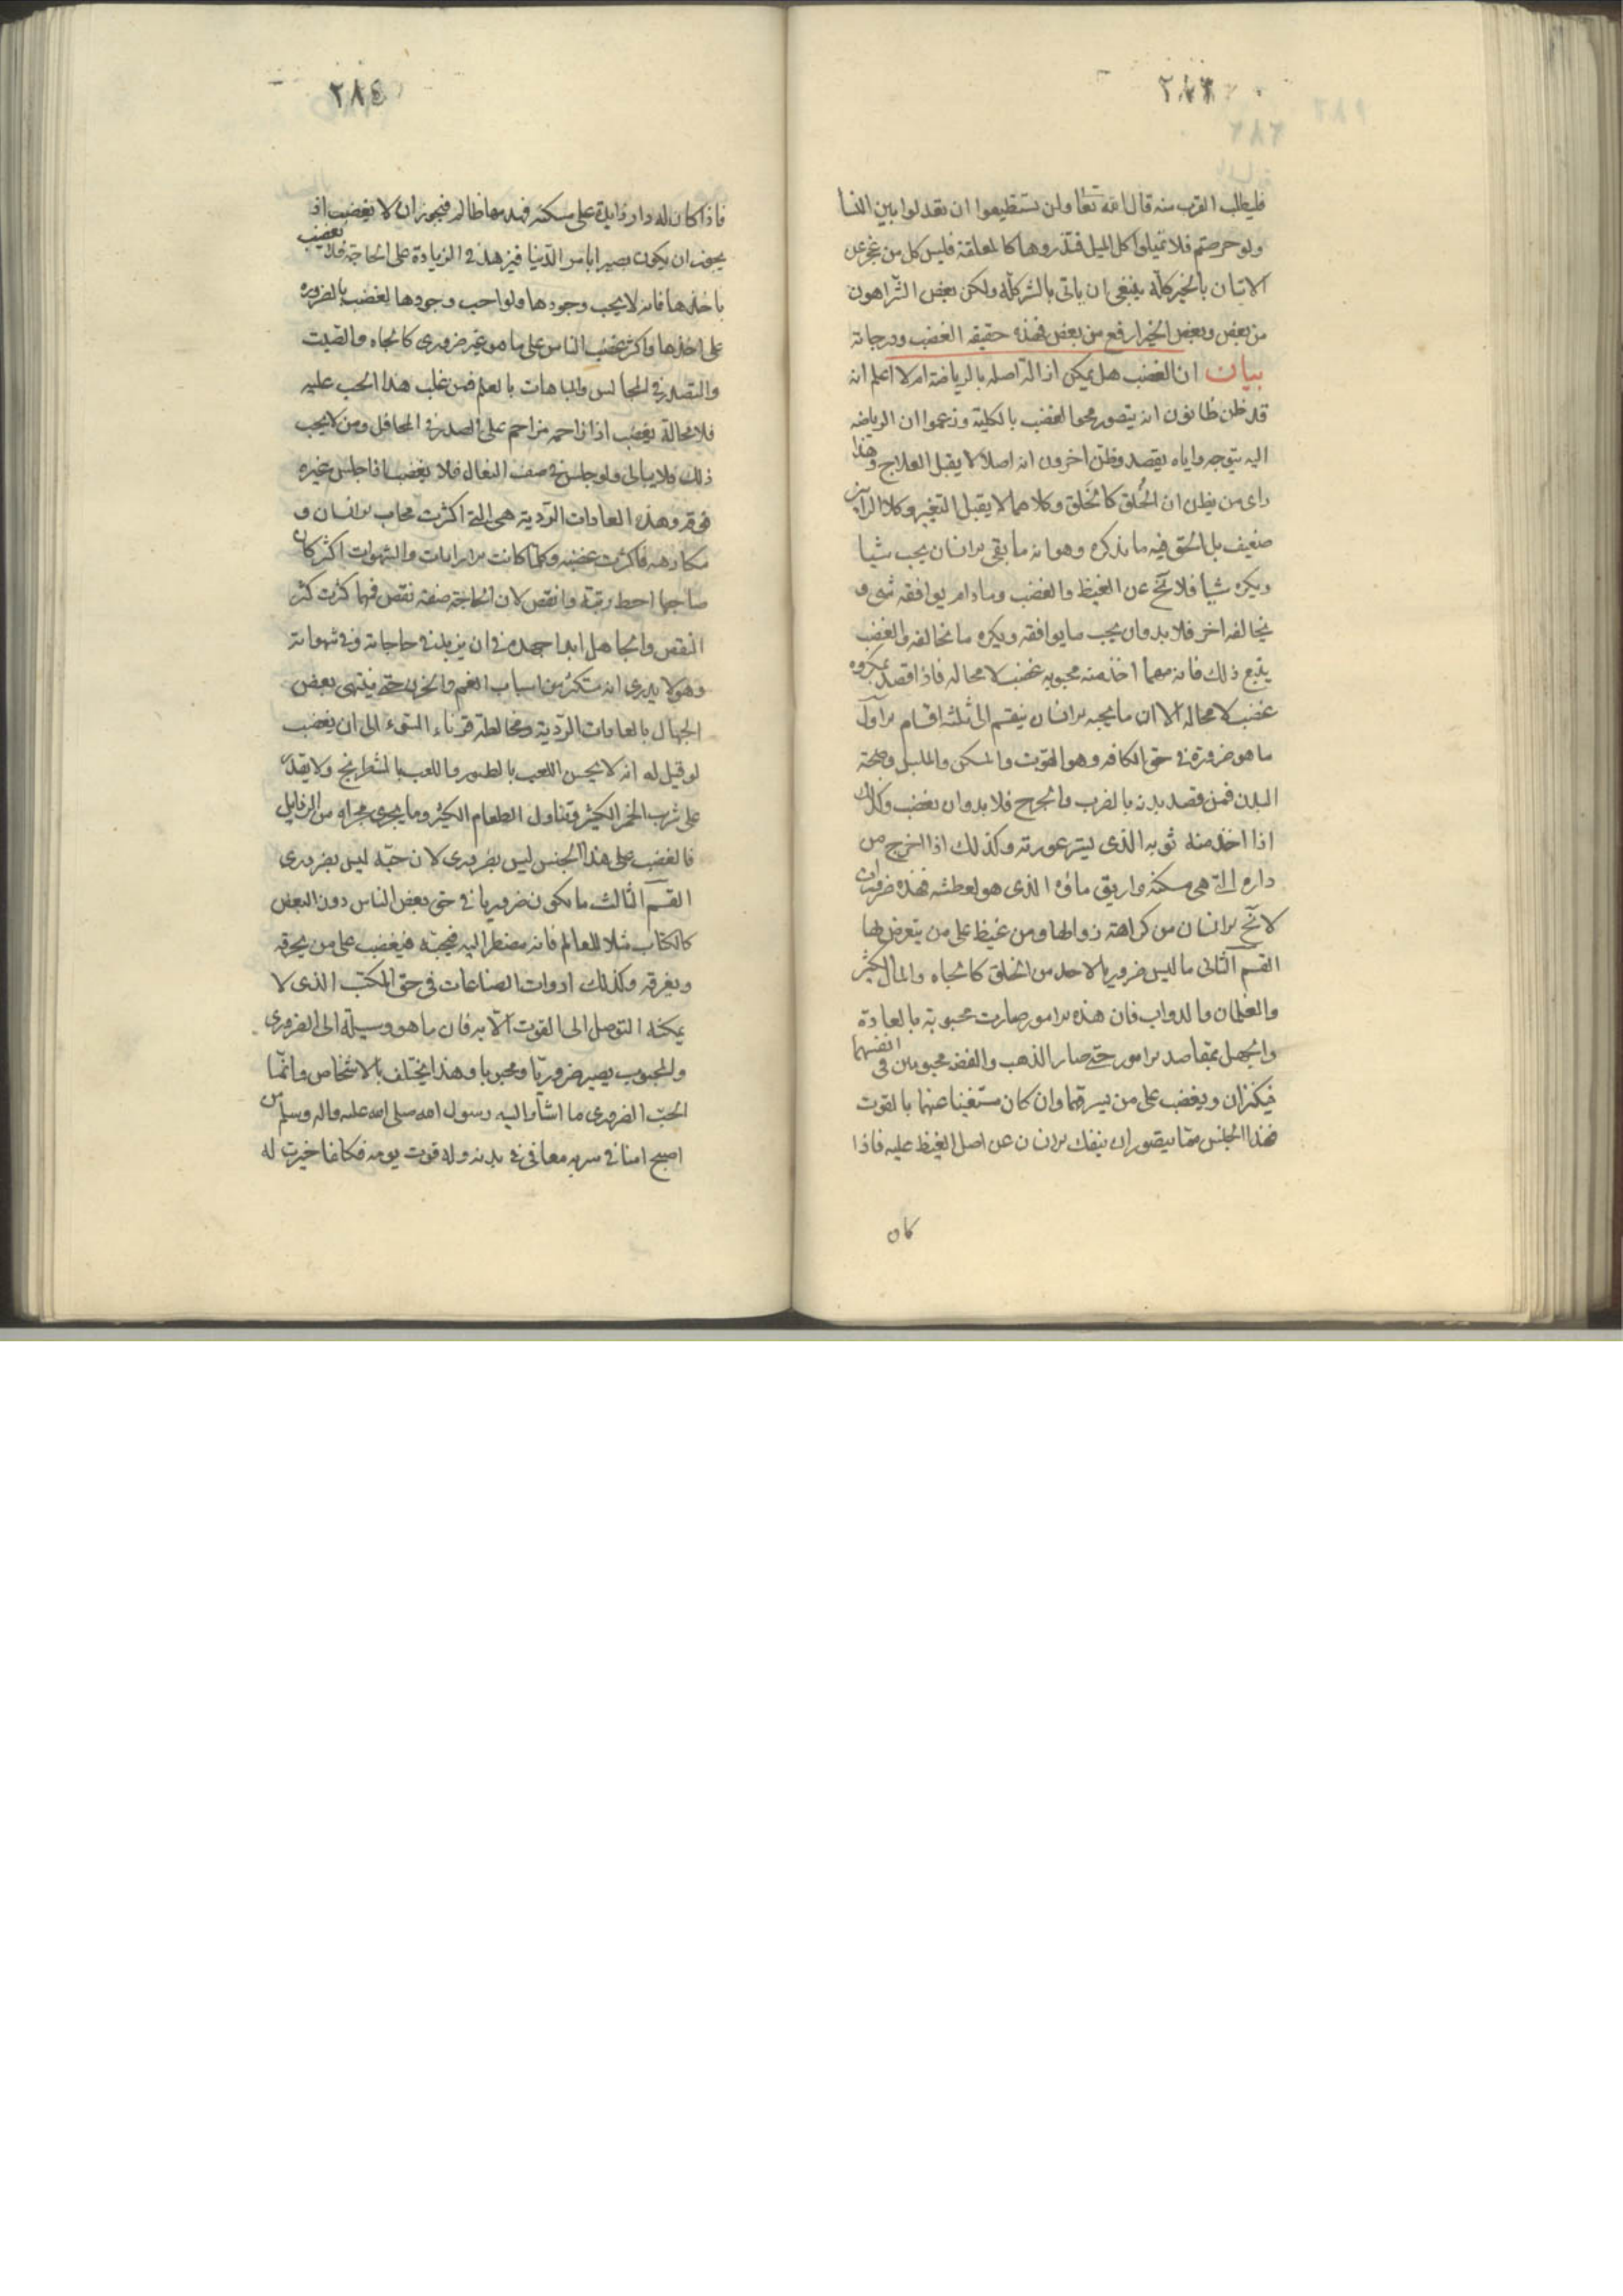 ٢٨٣
فليطلب القرب منه قال الله تعا ولن تستطيعوا ان تعدلوا بين النسا
ولو حرصتم فلا تميلوا كل الميل فتذروها كالمعلقة فليس كل من عجز عن
الاتيان بالخير كله ينبغي ان ياتي بالشر كله ولكن بعض الشر اهون
من بعض وبعض الخير ارفع من بعض فهذه حقيقه الغضب ودرجاته
بيان ان الغضب هل يمكن ازالة اصله بالرياضة ام لا اعلم انه
قد ظن ظانون انه يتصور محو الغضب بالكلية وزعموا ان الرياضه
اليه تتوجه واياه يقصد وظن اخرون انه اصلا لا يقبل العلاج وهذا
راى من يظن ان الخُلق كالخَلق وكلاهما لا يقبل التغير وكلا الرأيين
ضعيف بل الحق فيه ما نذكره وهو انه ما بقي الانسان يحب شيا
ويكره شيأ فلا يخ عن الغيظ والغضب ومادام يوافقه شئ و
يخالفه اخر فلا بد وان يحب ما يوافقه ويكره ما يخالفه والغضب
يتبع ذلك فانه مهما اخذ منه محبوبه غضب لا محاله فاذا قصد بمكروه
غضب لا محاله الا ان ما يحبه الانسان ينقسم الى ثلثة اقسام الاول
ما هو ضرورة في حق الكافه وهو القوت والمسكن والملبس وصحة
البدن فمن قصد بدنه بالضرب والجرح فلا بد وان يغضب وكذلك
اذا اخذ منه ثوبه الذى يستر عورته وكذلك اذا اخرج من
داره التي هى مسكنه واريق ماؤه الذى هو لعطشه فهذه ضروريات
لا يخ الانسان من كراهته زوالها ومن غيظ على من يتعرض لها
القسم الثانى ما ليس ضروريا لاحد من الخلق كالجاه والمال الكثير
والغلمان والدواب فان هذه الامور صارت محبوبة بالعادة
والجهل بمقاصد الامور حتى صار الذهب والفضه محبوبين في انفسهما
فيكنزان ويغضب على من يسرقهما وان كان مستغنيا عنهما بالقوت
فهذا الجنس مما يتصور ان ينفك الانسان عن اصل الغيظ عليه فاذا
كان
٢٨٤
فاذا كان له دار زايدة على مسكنه فهدمها ظالم فيجوز ان لا يغضب اذ
يجوز ان يكون بصيرا بامر الدنيا فيزهد في الزيادة على الحاجة فلا يغضب
باخذها فانه لا يحب وجودها ولو احب وجودها لغضب بالضروره
على اخذها واكثر غضب الناس على ما هو غير ضرورى كالجاه والصيت
والتصدر في المجالس والمباهات بالعلم فمن غلب هذا الحب عليه
فلا محالة يغضب اذا زاحمه مزاحم على الصدر في المحافل ومن لا يحب
ذلك فلا يبالى ولو جلس في صف النعال فلا يغضب اذا جلس غيره
فوقه وهذه العادات الردية هي التي اكثرت محاب الانسان و
مكارهه فاكثرت غضبه وكلما كانت الارادات والشهوات اكثر كان
صاحبها احط رتبة وانقص لان الحاجة صفة نقص فمهما كثرت كثر
النقص والجاهل ابدا جهده في ان يزيد في حاجاته وفي شهواته
وهو لا يدرى انه مستكثر من اسباب الغم والحزن حتى ينتهى بعض
الجهال بالعادات الردية ومخالطة قرناء السوء الى ان يغضب
لو قيل له انه لا يحسن اللعب بالطيور واللعب بالشطرنج ولا يقدر
على شرب الخمر الكثير وتناول الطعام الكثير وما يجرى مجراه من الرذايل
فالغضب على هذا الجنس ليس بضرورى لان حبّه ليس بضرورى
القسم الثالث ما يكون ضروريا في حق بعض الناس دون البعض
كالكتاب مثلا للعالم فانه مضطر اليه فيحبّه فيغضب على من يحرقه
ويغرقه وكذلك ادوات الصناعات في حق المكتسب الذى لا
يمكنه التوصل الى القوت الا به فان ما هو وسيلة الى الضرورى
والمحبوب يصير ضروريّا ومحبوبا وهذا يختلف بالاشخاص وانّما
الحبّ الضرورى ما اشار اليه رسول الله صلى الله عليه واله وسلم من
اصبح امنا في سربه معافى في بدنه وله قوت يومه فكانما خيرت له